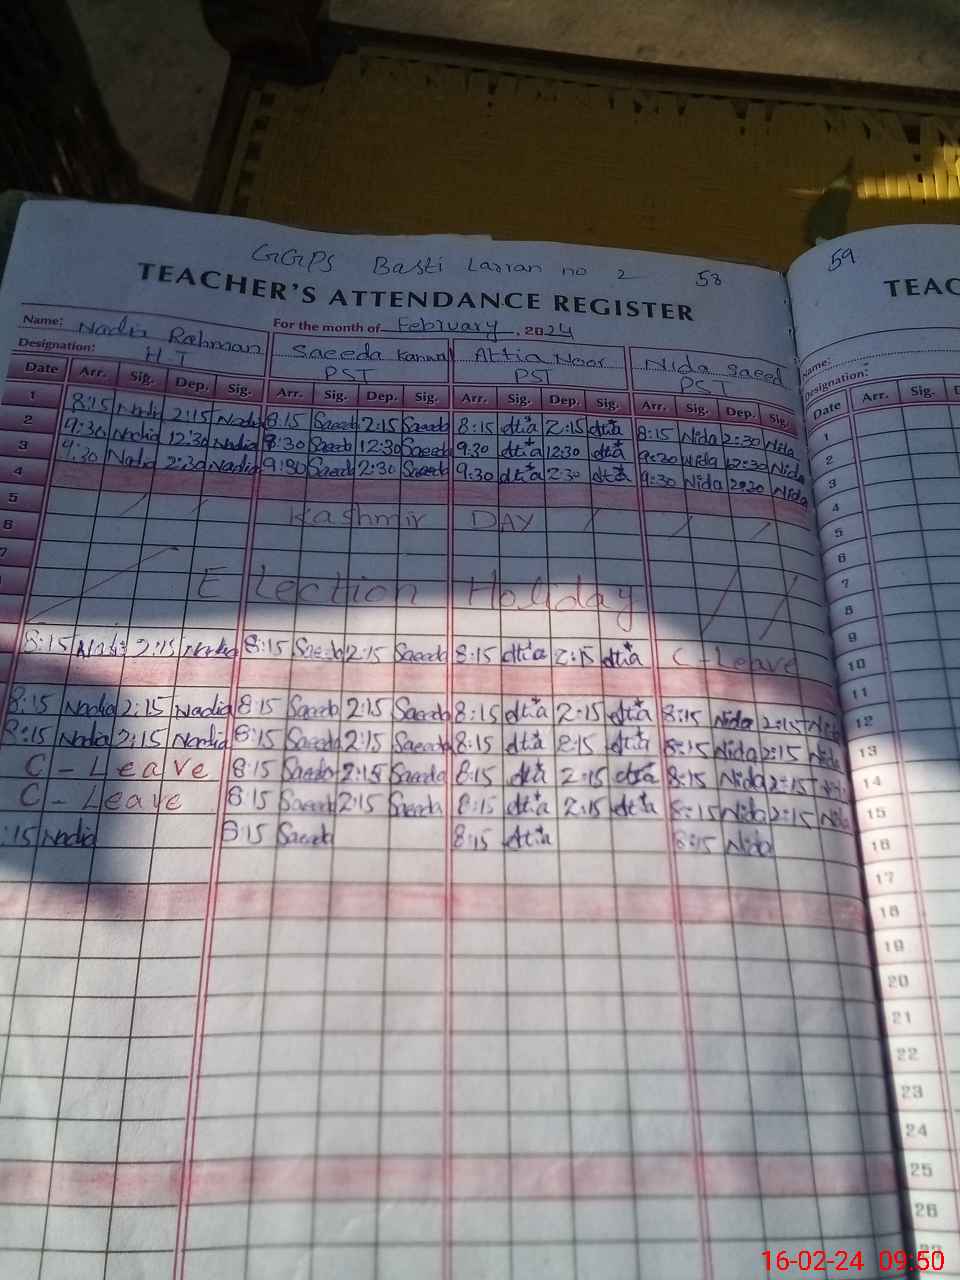 GGPS Basti Larran no 2 58
TEACHER'S ATTENDANCE REGISTER
Name: Nadia Rahman For the month of February, 2024
Designation: H T Saeeda Kanwal Attia Noor Nida Saeed
PST PST PST
Date Arr. Sig. Dep. Sig. Arr. Sig. Dep. Sig. Arr. Sig. Dep. Sig. Arr. Sig. Dep. Sig.
1 8:15 Nadia 2:15 Nadia 8:15 Saeeda 2:15 Saeeda 8:15 Attia 2:15 Attia 8:15 Nida 2:30 Nida
2 9:30 Nadia 12:30 Nadia 9:30 Saeeda 12:30 Saeeda 9:30 Attia 12:30 Attia 9:30 Nida 12:30 Nida
3 9:30 Nadia 2:30 Nadia 9:30 Saeeda 2:30 Saeeda 9:30 Attia 2:30 Attia 9:30 Nida 2:30 Nida
4
5 Kashmir DAY
6
7 Election Holiday
8:15 Nadia 2:15 Nadia 8:15 Saeeda 2:15 Saeeda 8:15 Attia 2:15 Attia C-Leave
8:15 Nadia 2:15 Nadia 8:15 Saeeda 2:15 Saeeda 8:15 Attia 2:15 Attia 8:15 Nida 2:15 Nida
8:15 Nadia 2:15 Nadia 8:15 Saeeda 2:15 Saeeda 8:15 Attia 2:15 Attia 8:15 Nida 2:15 Nida
C-Leave 8:15 Saeeda 2:15 Saeeda 8:15 Attia 2:15 Attia 8:15 Nida 2:15
C-Leave 8:15 Saeeda 2:15 Saeeda 8:15 Attia 2:15 Attia 8:15 Nida 2:15 Nida
:15 Nadia 8:15 Saeeda 8:15 Attia 8:15 Nida
59
TEAC
Name:
Designation:
Date Arr. Sig. D
1
2
3
4
5
6
7
8
9
10
11
12
13
14
15
16
17
18
19
20
21
22
23
24
25
26
16-02-24 09:50